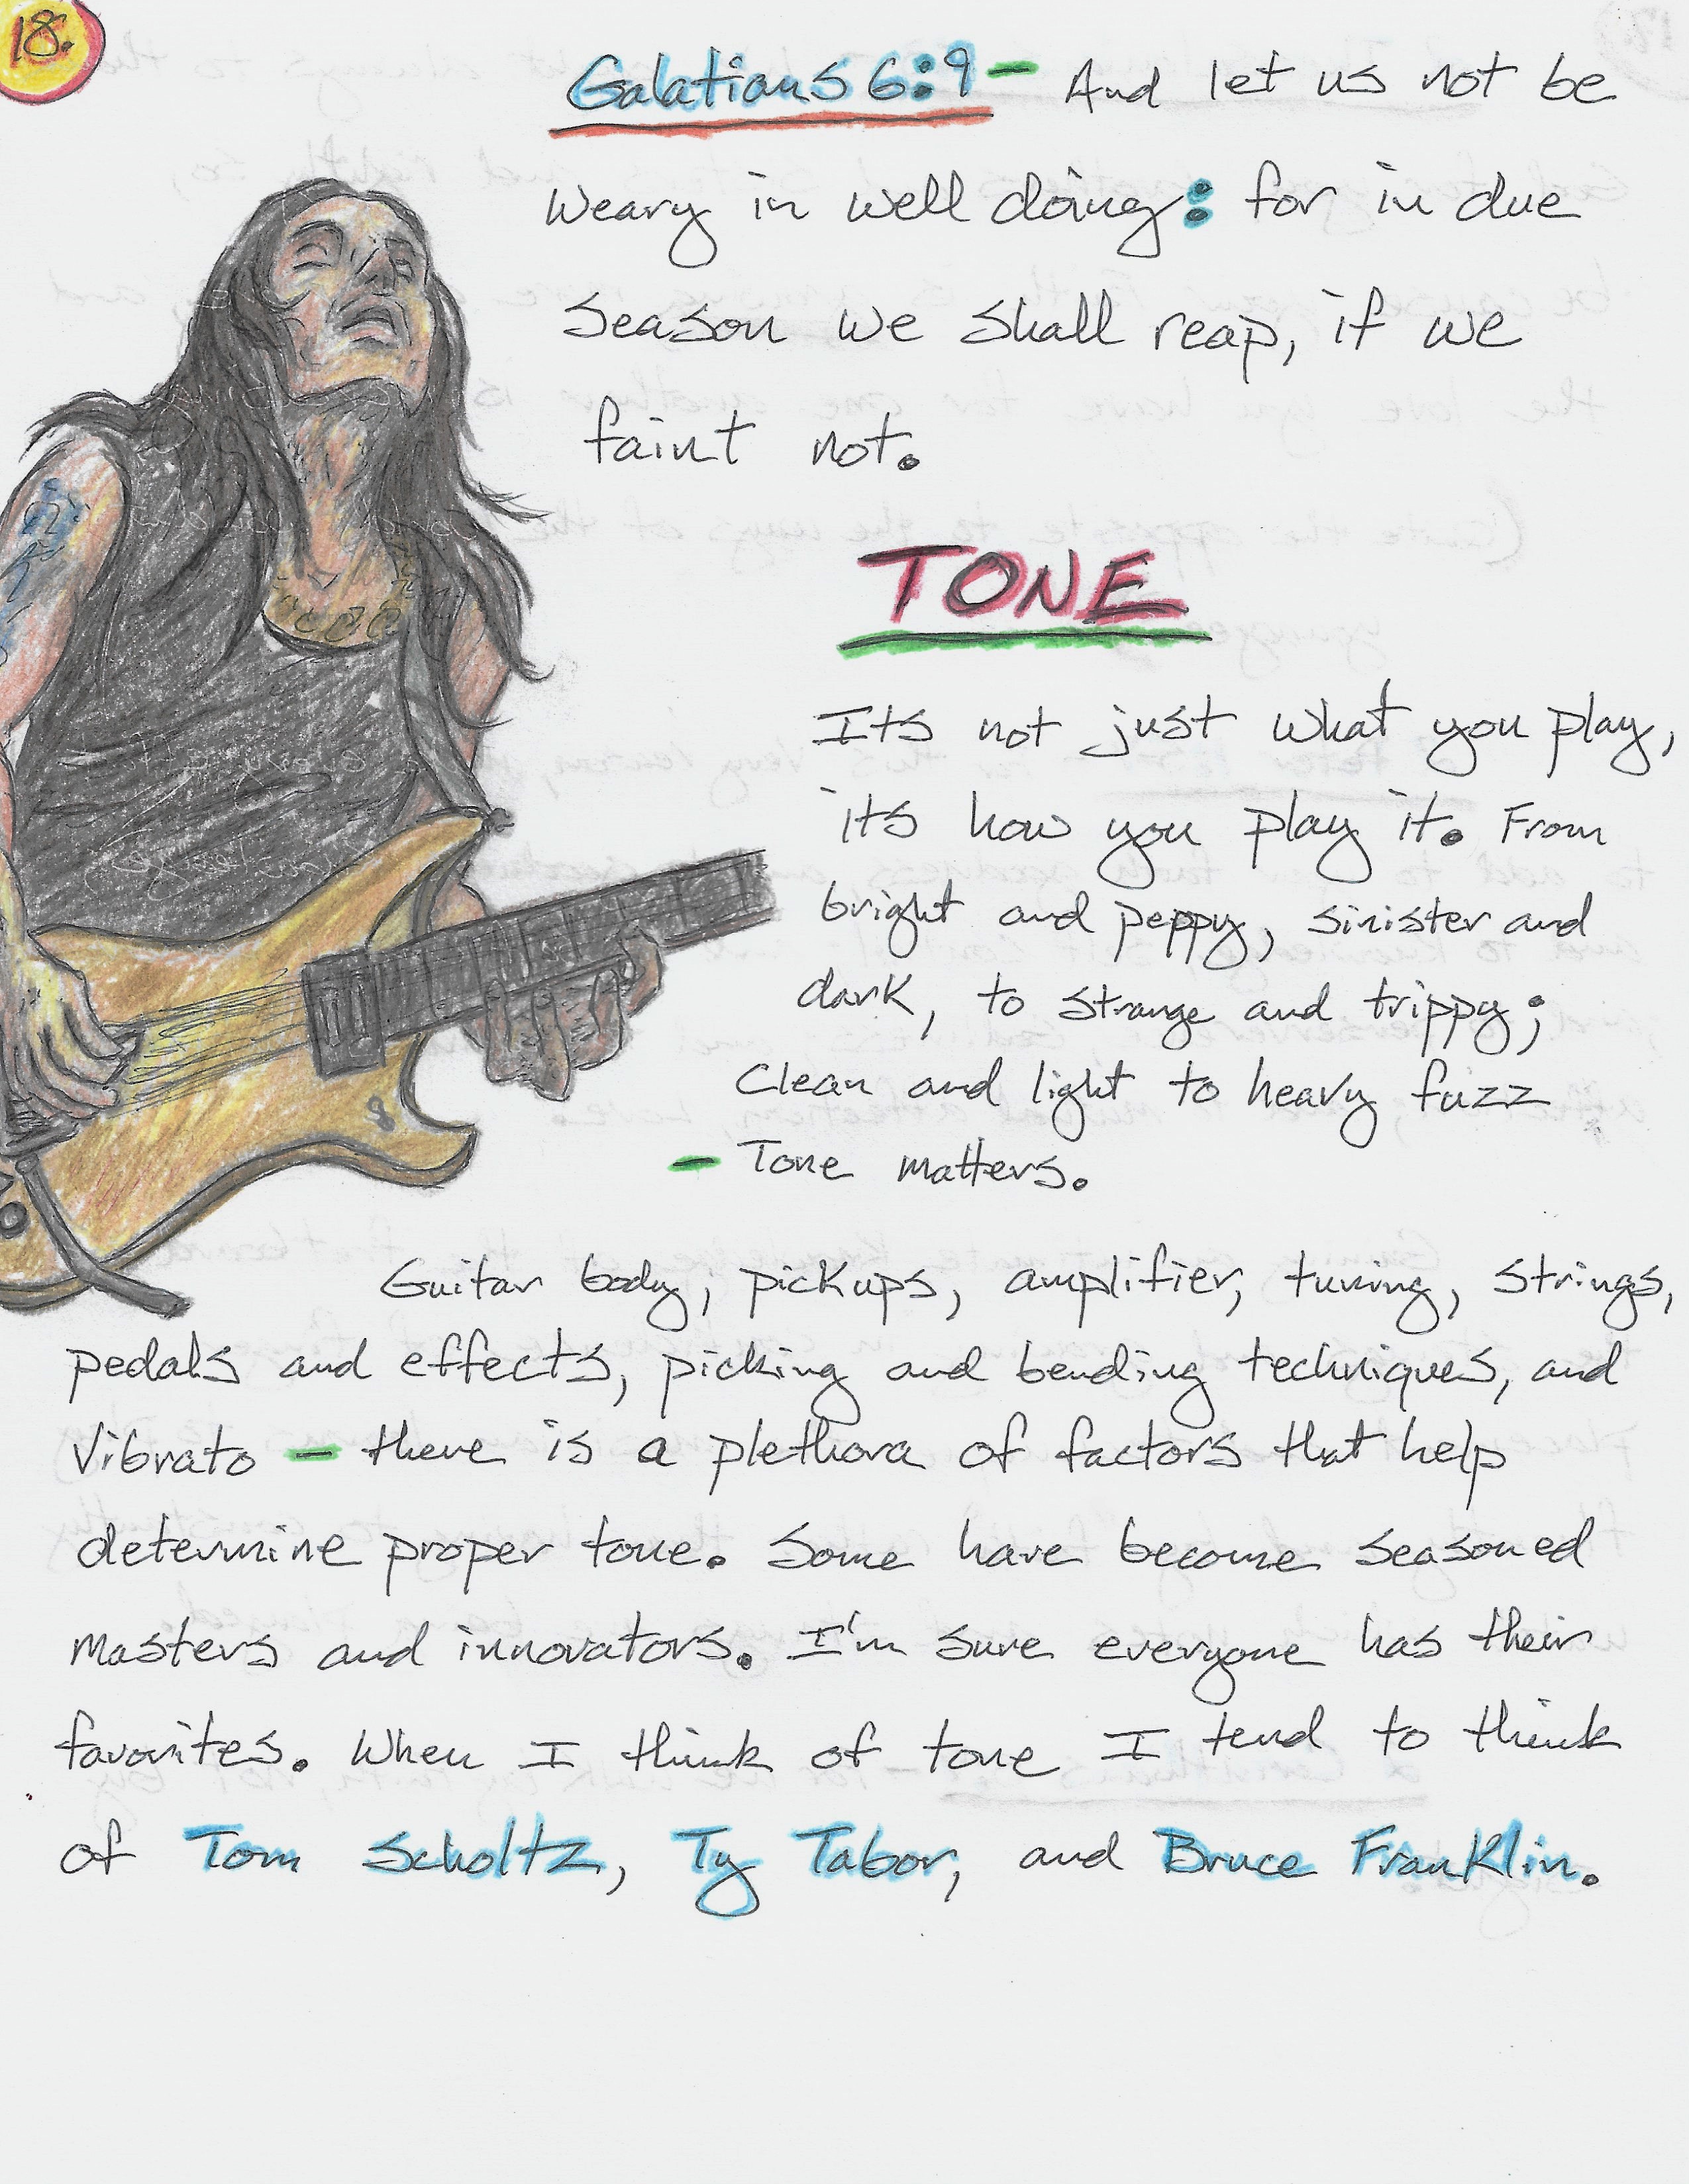 18.
Galatians 6:9 - And let us not be
weary in well doing: for in due
season we shall reap, if we
faint not.
TONE
Its not just what you play,
its how you play it. From
bright and peppy, sinister and
dark, to strange and trippy;
Clean and light to heavy fuzz
- Tone matters.
Guitar body, pickups, amplifier, tuning, strings,
pedals and effects, picking and bending techniques, and
Vibrato - there is a plethora of factors that help
determine proper tone. Some have become seasoned
masters and innovators. I'm sure everyone has their
favorites. When I think of tone I tend to think
of Tom Scholtz, Ty Tabor, and Bruce Franklin.